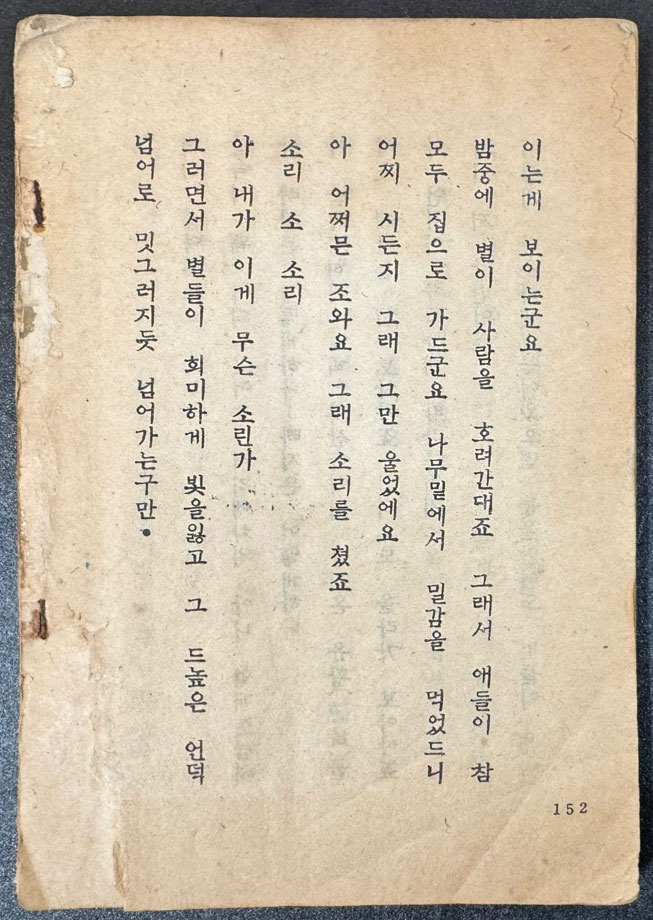 이는게 보이는군요
밤중에 별이 사람을 호려간대죠 그래서 애들이 참
모두 집으로 가드군요 나무밑에서 밀감을 먹었드니
어찌 시든지 그래 그만 울었에요
아 어쩌믄 조와요 그래 소리를 쳤죠
소리 소 소리
아 내가 이게 무슨 소린가
그러면서 별들이 희미하게 빛을잃고 그 드높은 언덕
넘어로 밋그러지듯 넘어가는구만.
152